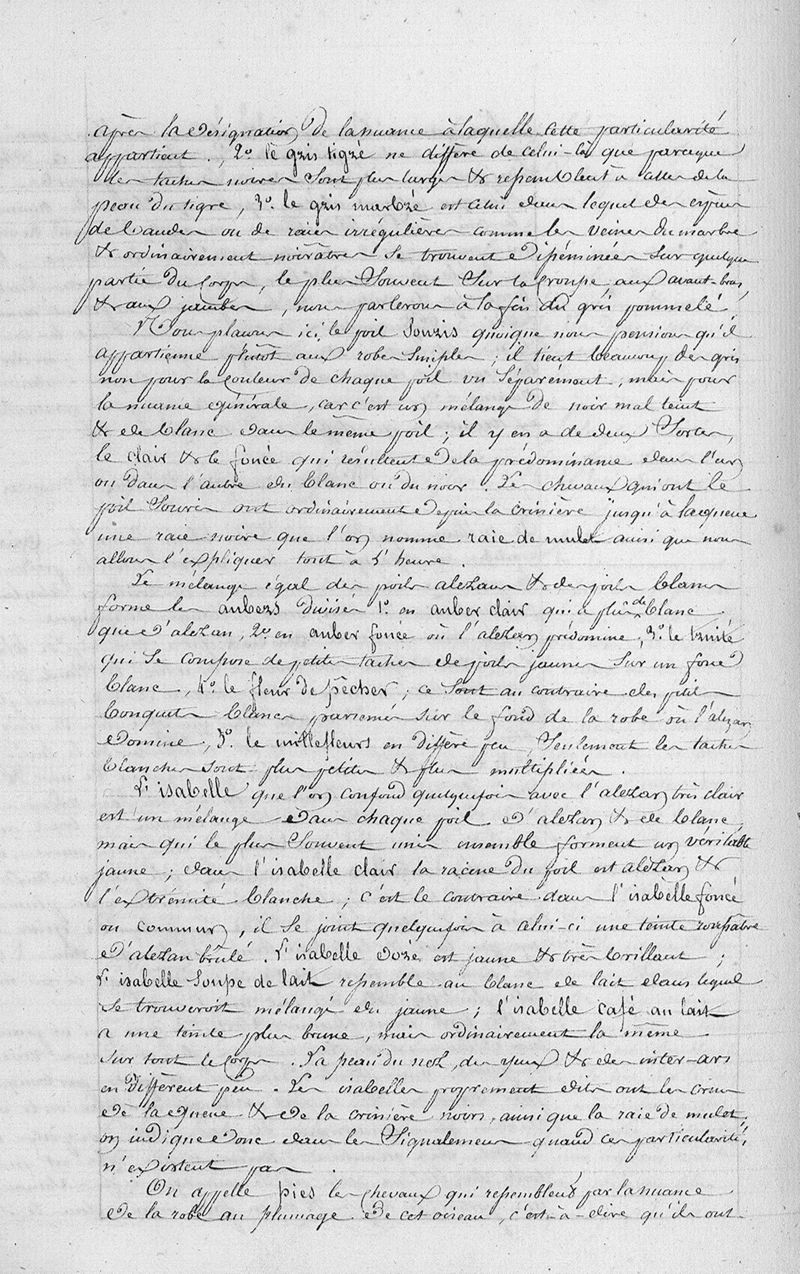 après la désignation de la nuance à laquelle cette particularité
appartient. 2.° le gris tigré ne diffère de celui-là que parceque
les taches noires sont plus larges & ressemblent à celles de la
peau du tigre, 3.° le gris marbré est celui dans lequel des espèces
de bandes ou de raies irrégulières comme les veines du marbre
& ordinairement noirâtres se trouvent disséminées sur quelque
partie du corps, le plus souvent sur la croupe aux avant-bras,
& aux jambes, nous parlerons à la fois du gris pommelé,
Nous plaçons ici le poil souris quoique nous pensions qu'il
appartienne plutôt aux robes simples; il tient beaucoup du gris
non pour la couleur de chaque poil vu séparement, mais pour
la nuance générale, car c'est un mélange de noir mal teint
& de blanc dans le même poil; il y en a de deux sortes,
le clair & le foncé qui résultent de la prédominance dans l'un
ou dans l'autre du blanc ou du noir. Les chevaux qui ont le
poil souris ont ordinairement depuis la crinière jusqu'à la queue
une raie noire que l'on nomme raie de mulet ainsi que nous
allons l'expliquer tout à l'heure.
Le mélange égal des poils alezans & des poils blancs
forme les aubers divisés 1.° en auber clair qui a plus de blanc
que d'alezan, 2.° en auber foncé où l'alezan prédomine, 3.° le truité
qui se compose de petites taches de poils jaunes sur un fond
blanc, 4.° le fleur de pêcher; ce sont au contraire des petits
bouquets blancs parsemés sur le fond de la robe où l'alezan
domine, 5.° le millefleurs en diffère peu, seulement les taches
blanches sont plus petites & plus multipliées.
L'isabelle que l'on confond quelquefois avec l'alezan très clair
est un mélange dans chaque poil d'alezan & de blanc,
mais qui le plus souvent unis ensemble forment un véritable
jaune; dans l'isabelle clair la racine du poil est alezan &
l'extrémité blanche; c'est le contraire dans l'isabelle foncé
ou commun, il se joint quelquefois à celui-ci une teinte roussâtre
d'alezan brûlé. L'isabelle doré est jaune & très brillant;
L'isabelle soupe de lait ressemble au blanc de lait dans lequel
se trouveroit mélangé du jaune; l'isabelle café au lait
a une teinte plus brune, mais ordinairement la même
sur tout le corps. La peau du nez, des yeux & des inter-ars
en diffèrent peu. Les isabelles proprement dits ont les crins
de la queue & de la crinière noirs, ainsi que la raie de mulet,
on indique donc dans les signalemens quand ces particularités
n'existent pas.
On appelle pies les chevaux qui ressemblent par la nuance
de la robe au plumage de cet oiseau, c'est-à-dire qu'ils ont